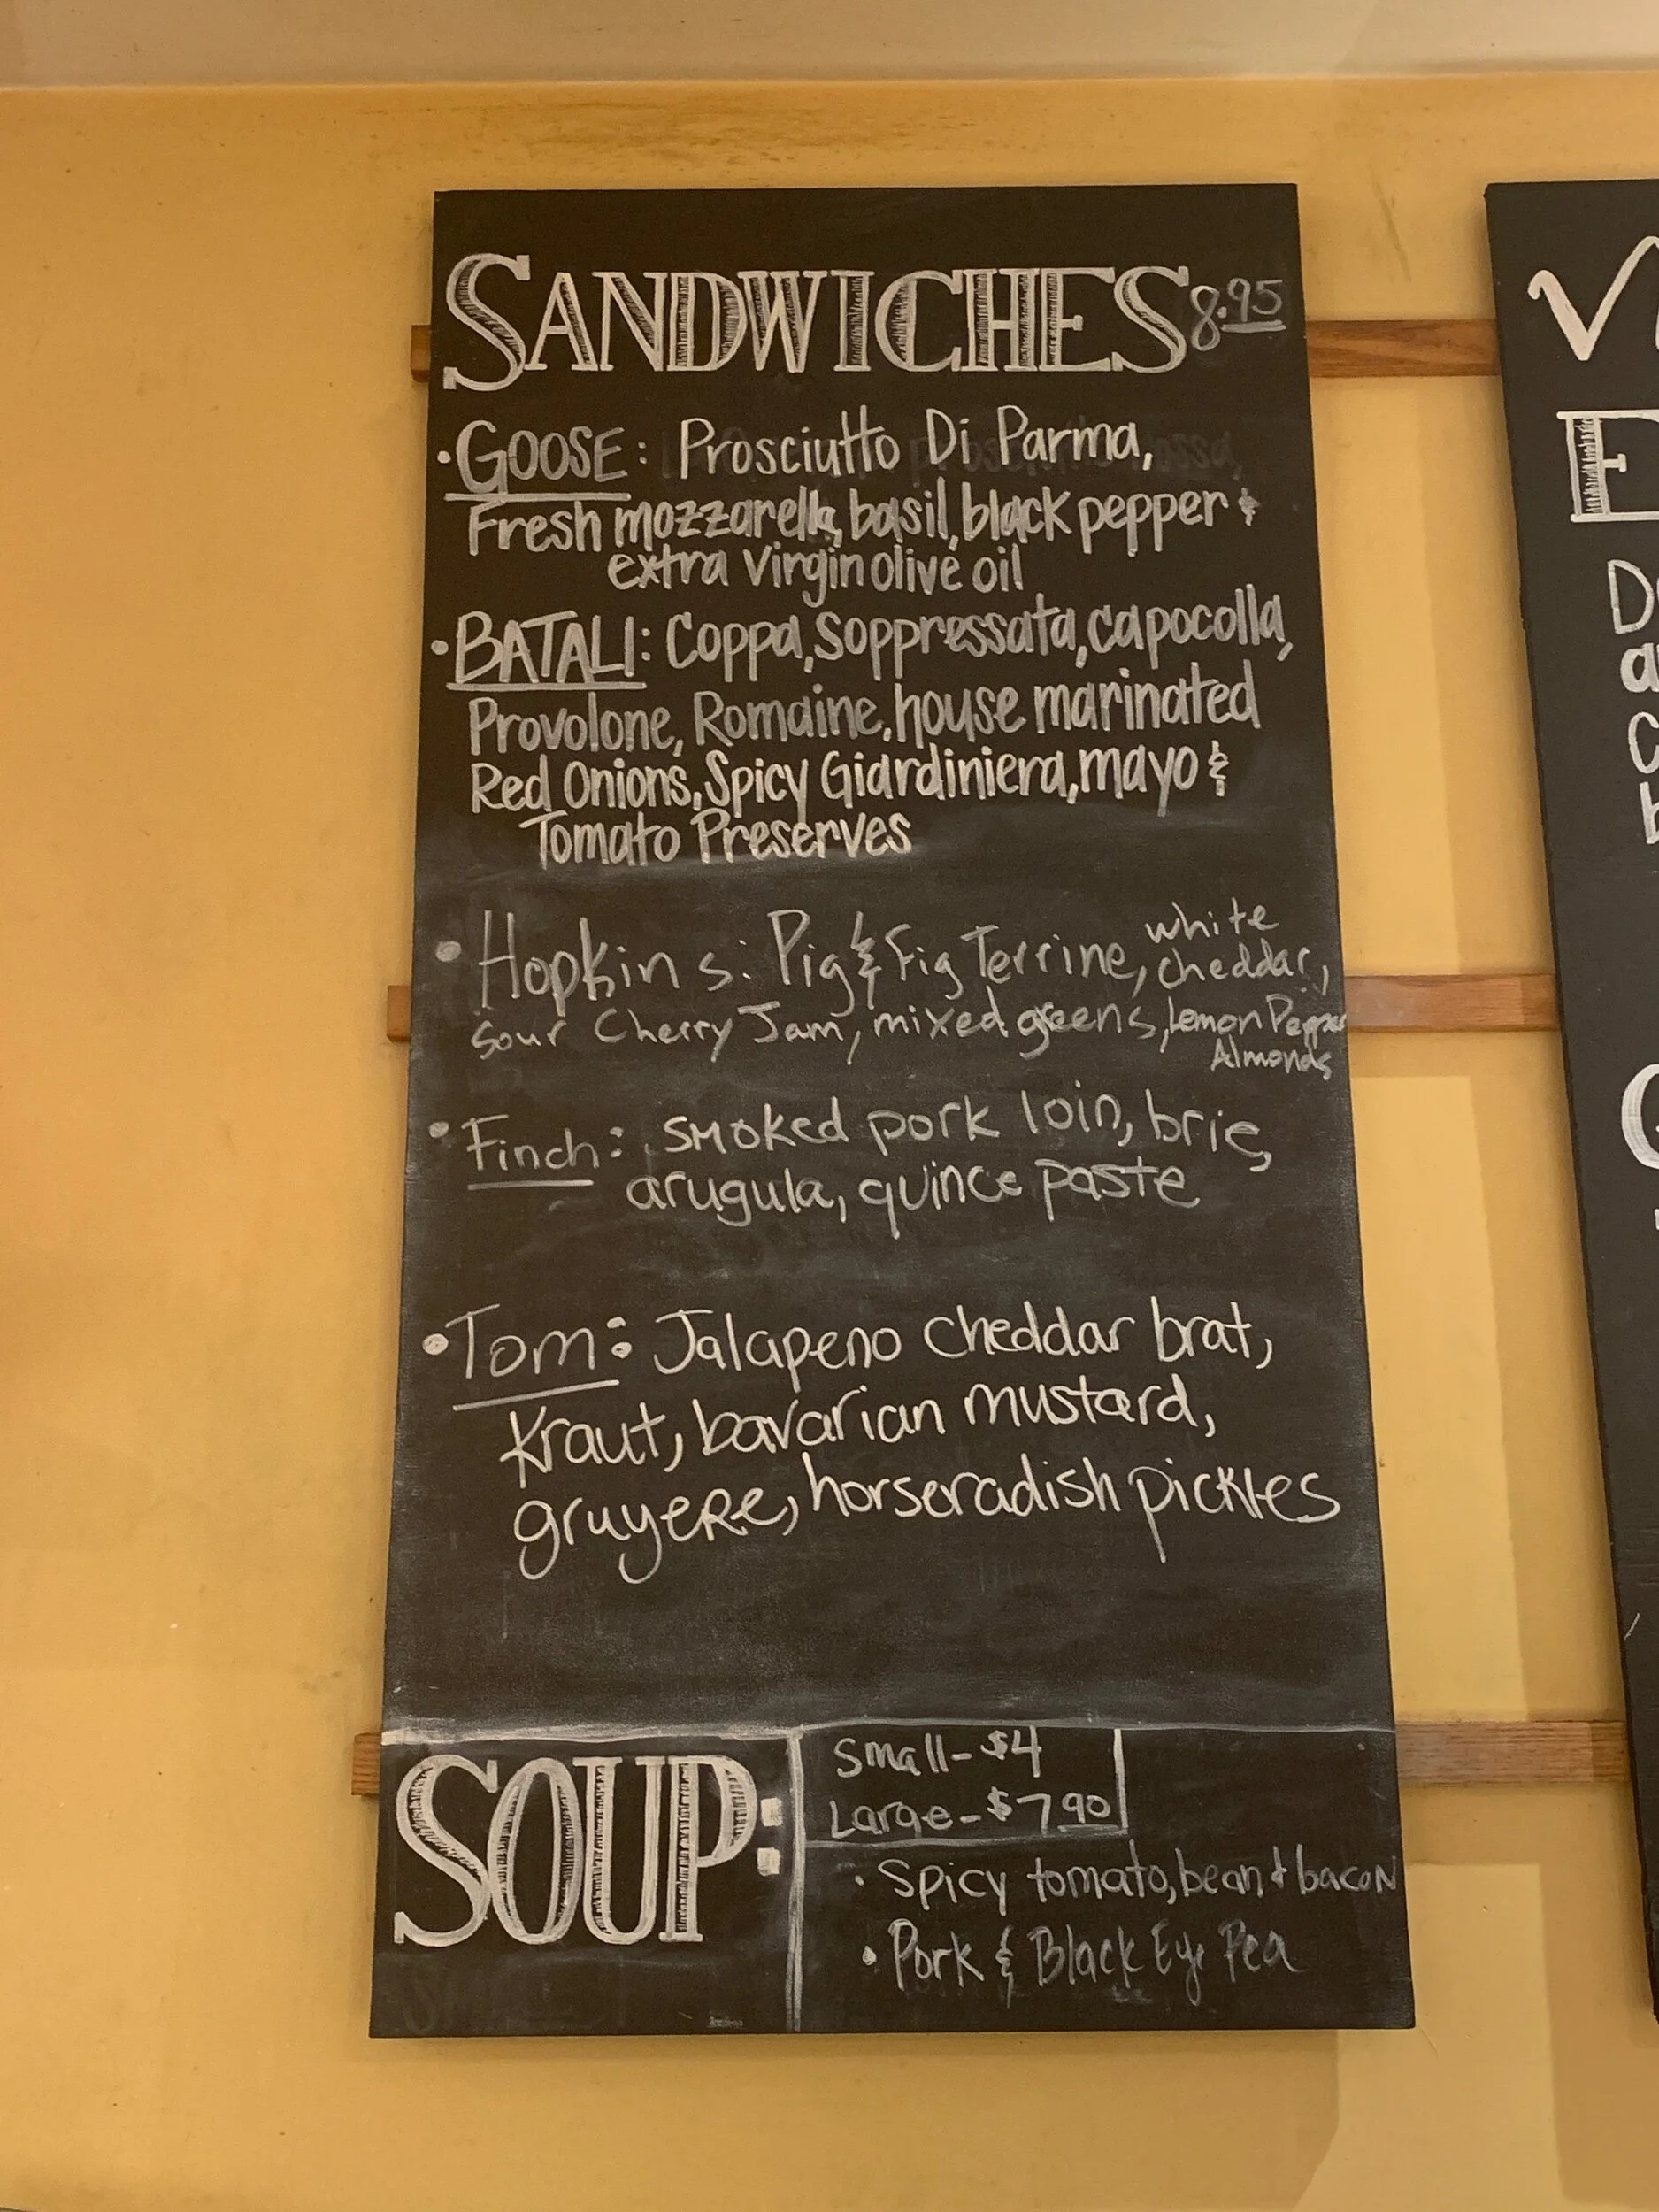 SANDWICHES 8.95
• GOOSE: Prosciutto Di Parma,
Fresh mozzarella, basil, black pepper &
extra virgin olive oil
• BATALI: Coppa, Soppressata, capocolla,
Provolone, Romaine, house marinated
Red Onions, Spicy Giardiniera, mayo &
Tomato Preserves
• Hopkins: Pig & Fig Terrine, white cheddar,
Sour Cherry Jam, mixed greens, Lemon Pepper
Almonds
• Finch: smoked pork loin, brie,
arugula, quince paste
• Tom: Jalapeno cheddar brat,
Kraut, bavarian mustard,
gruyere, horseradish pickles
SOUP:
Small - $4
Large - $7.90
• Spicy tomato, bean & bacon
• Pork & Black Eye Pea